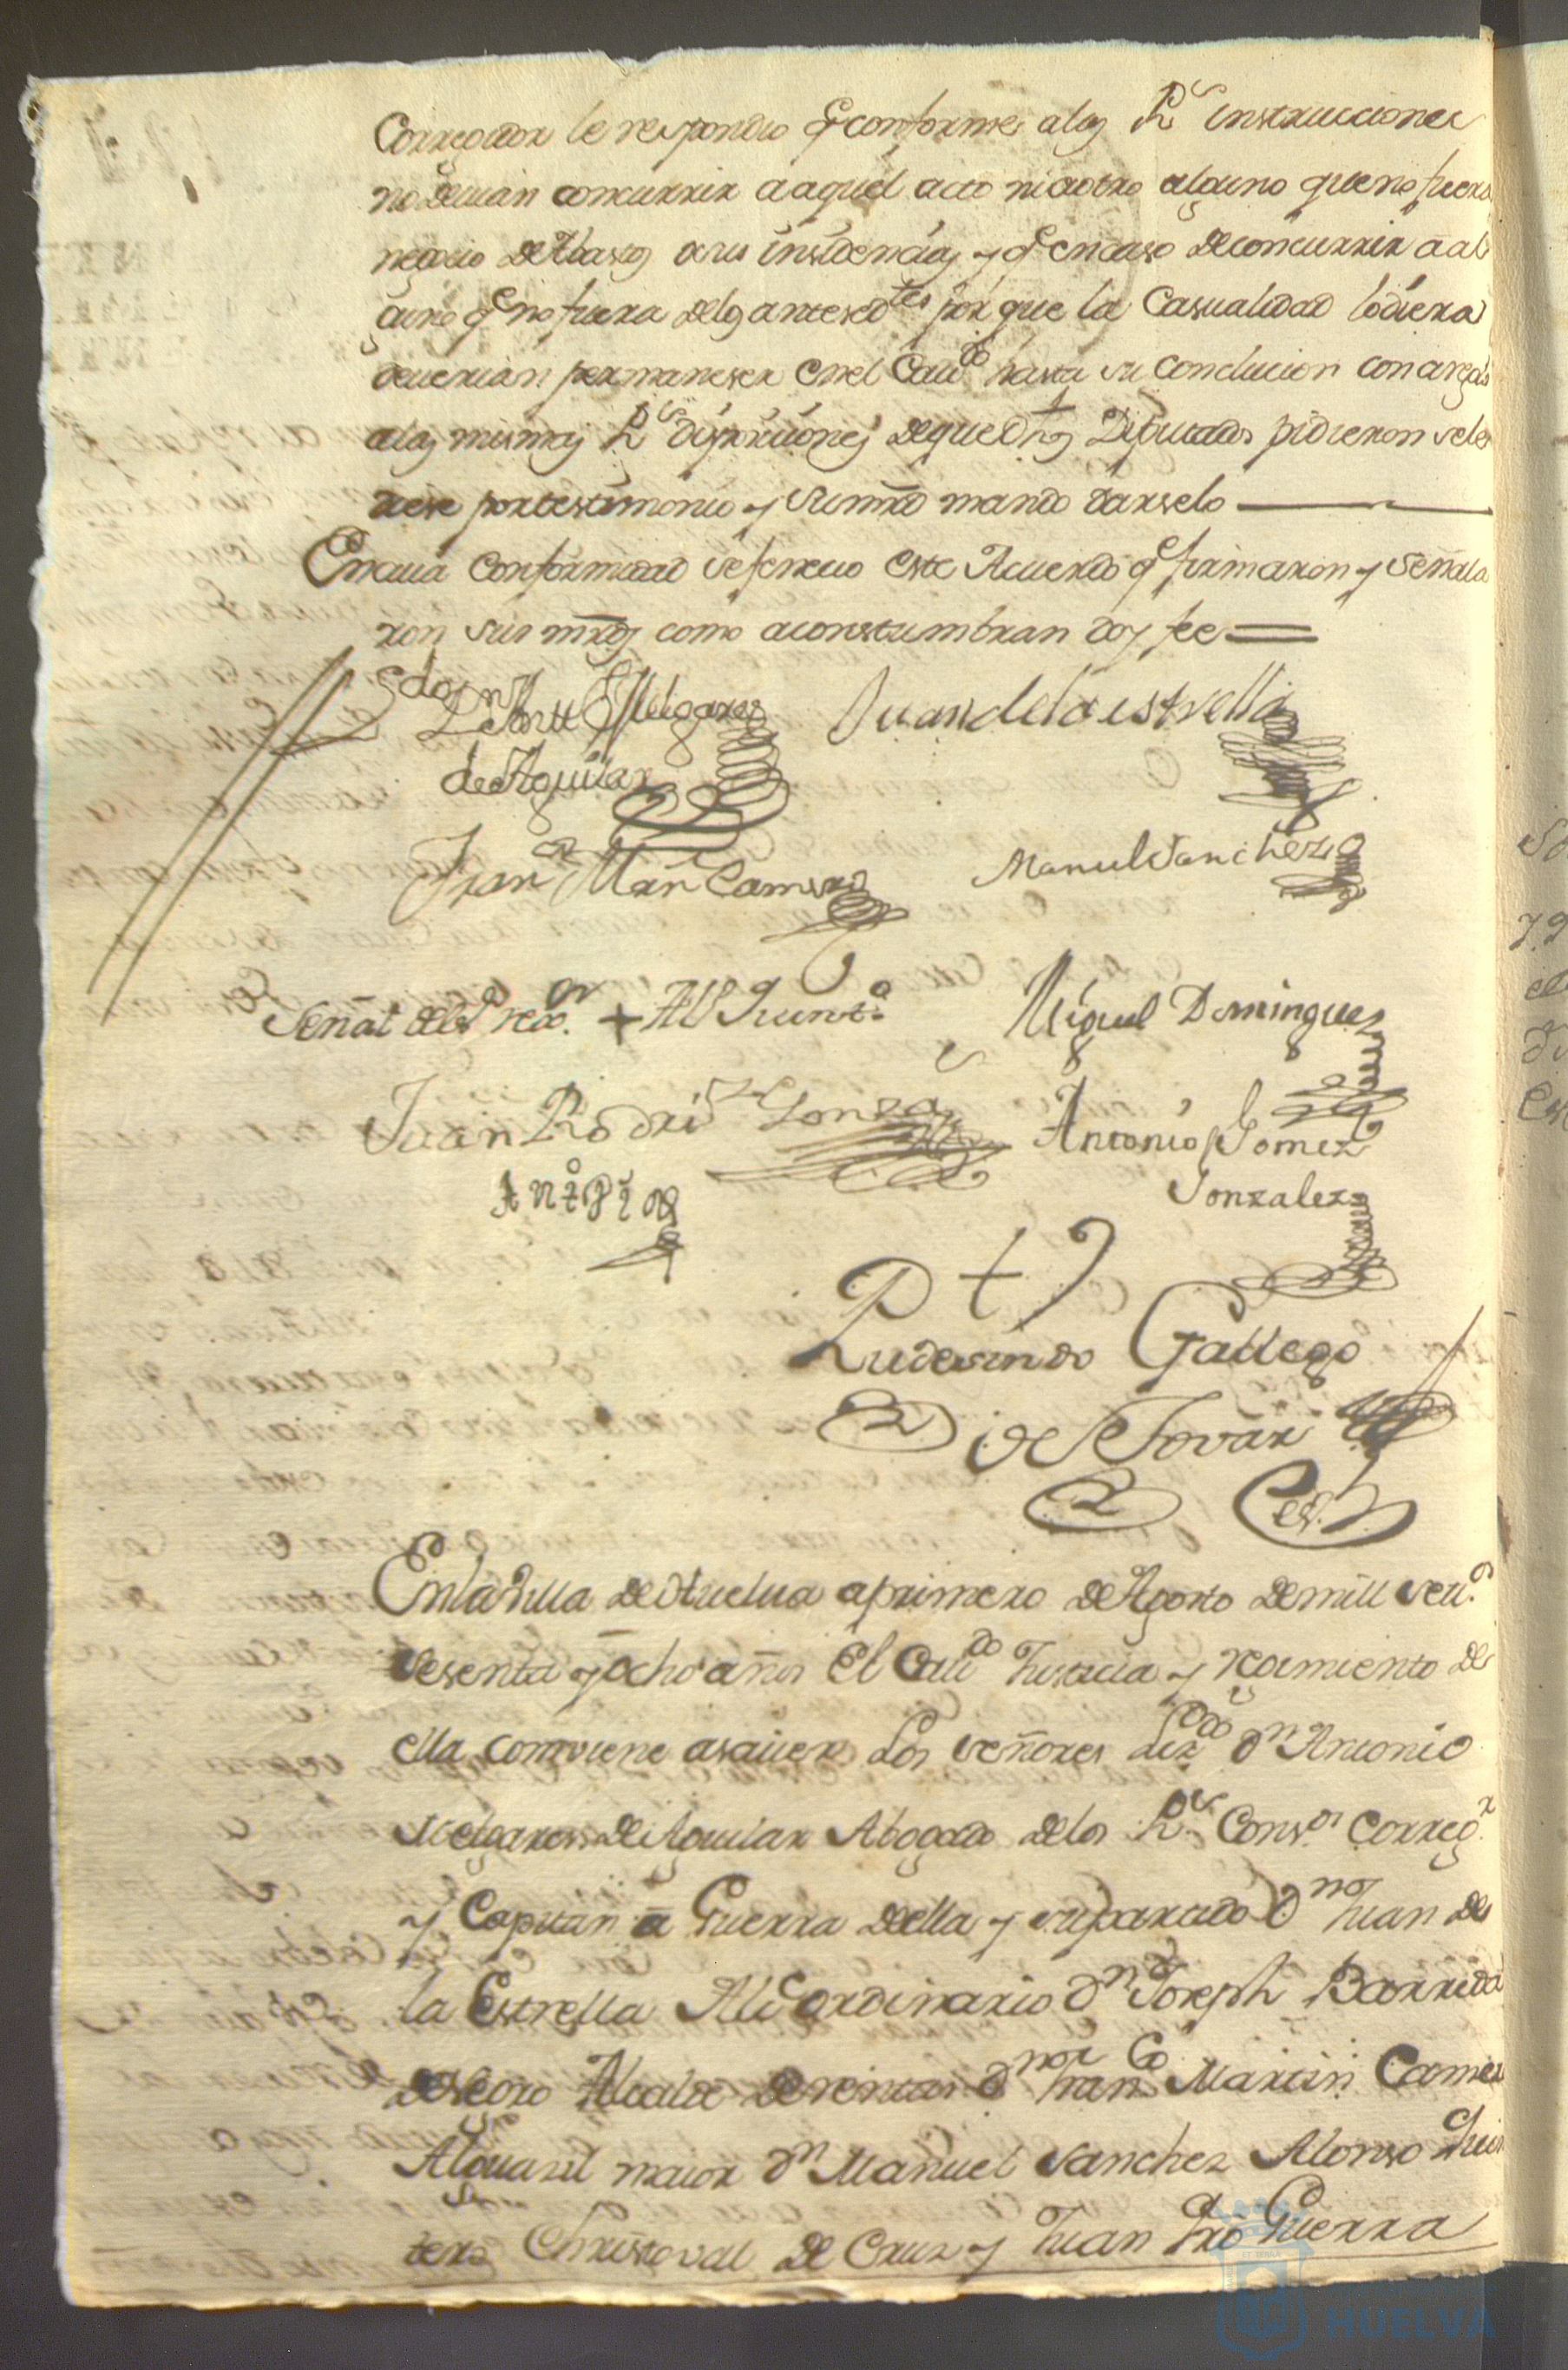 Corregidor le respondio q.e conforme a las R.s instrucciones
no devian concurrir a aquel acto ni a otro alguno que no fuera
negocio de Abastos o sus insidencias y q.e en caso de concurrir a al
guno q.e no fuera de los antesed.tes por que la Casualidad lo diera
deverian permaneser en el Cav.do hasta su conclucion con areglo
a las mismas R.s disposiciones de que dhos Diputados pidieron se les
diese por testimonio y su mrd mando darselo
En cuia conformidad se feneció este Acuerdo q.e firmaron y señala
ron sus mrds como acostumbran doy fee =
L.do D.n Ant.o Melgarejo
de Aguilar
Juan de la estrella
Fran.co Mar.n Camero
Manuel Sanchez
Señal del S.r reg.or + Al.o Quint.o
Miguel Dominguez
Juan Rodri.z Gonza.s
Antonio Gomez
Gonzalez
Ant.o
Rudesindo Gallego
de Tovar
Es.no
En la Villa de Huelva a primero de Agosto de mill set.s
sesenta y ocho años El Cav.do Justicia y regimiento de
ella conviene a saver Los señores Liz.do d.n Antonio
Melgarejo de Aguilar Abogado de los R.s Cons.os Correg.r
y Capitan a Guerra de ella y su partido D.n Juan de
la Estrella Alc.e ordinario D.n Joseph Barreda
Alcalde D.n Fran.co Martin Camero
Alguasil maior D.n Manuel Sanchez Alonso Quin
tero Christoval de Cruz y Juan Pro Guerra
HUELVA